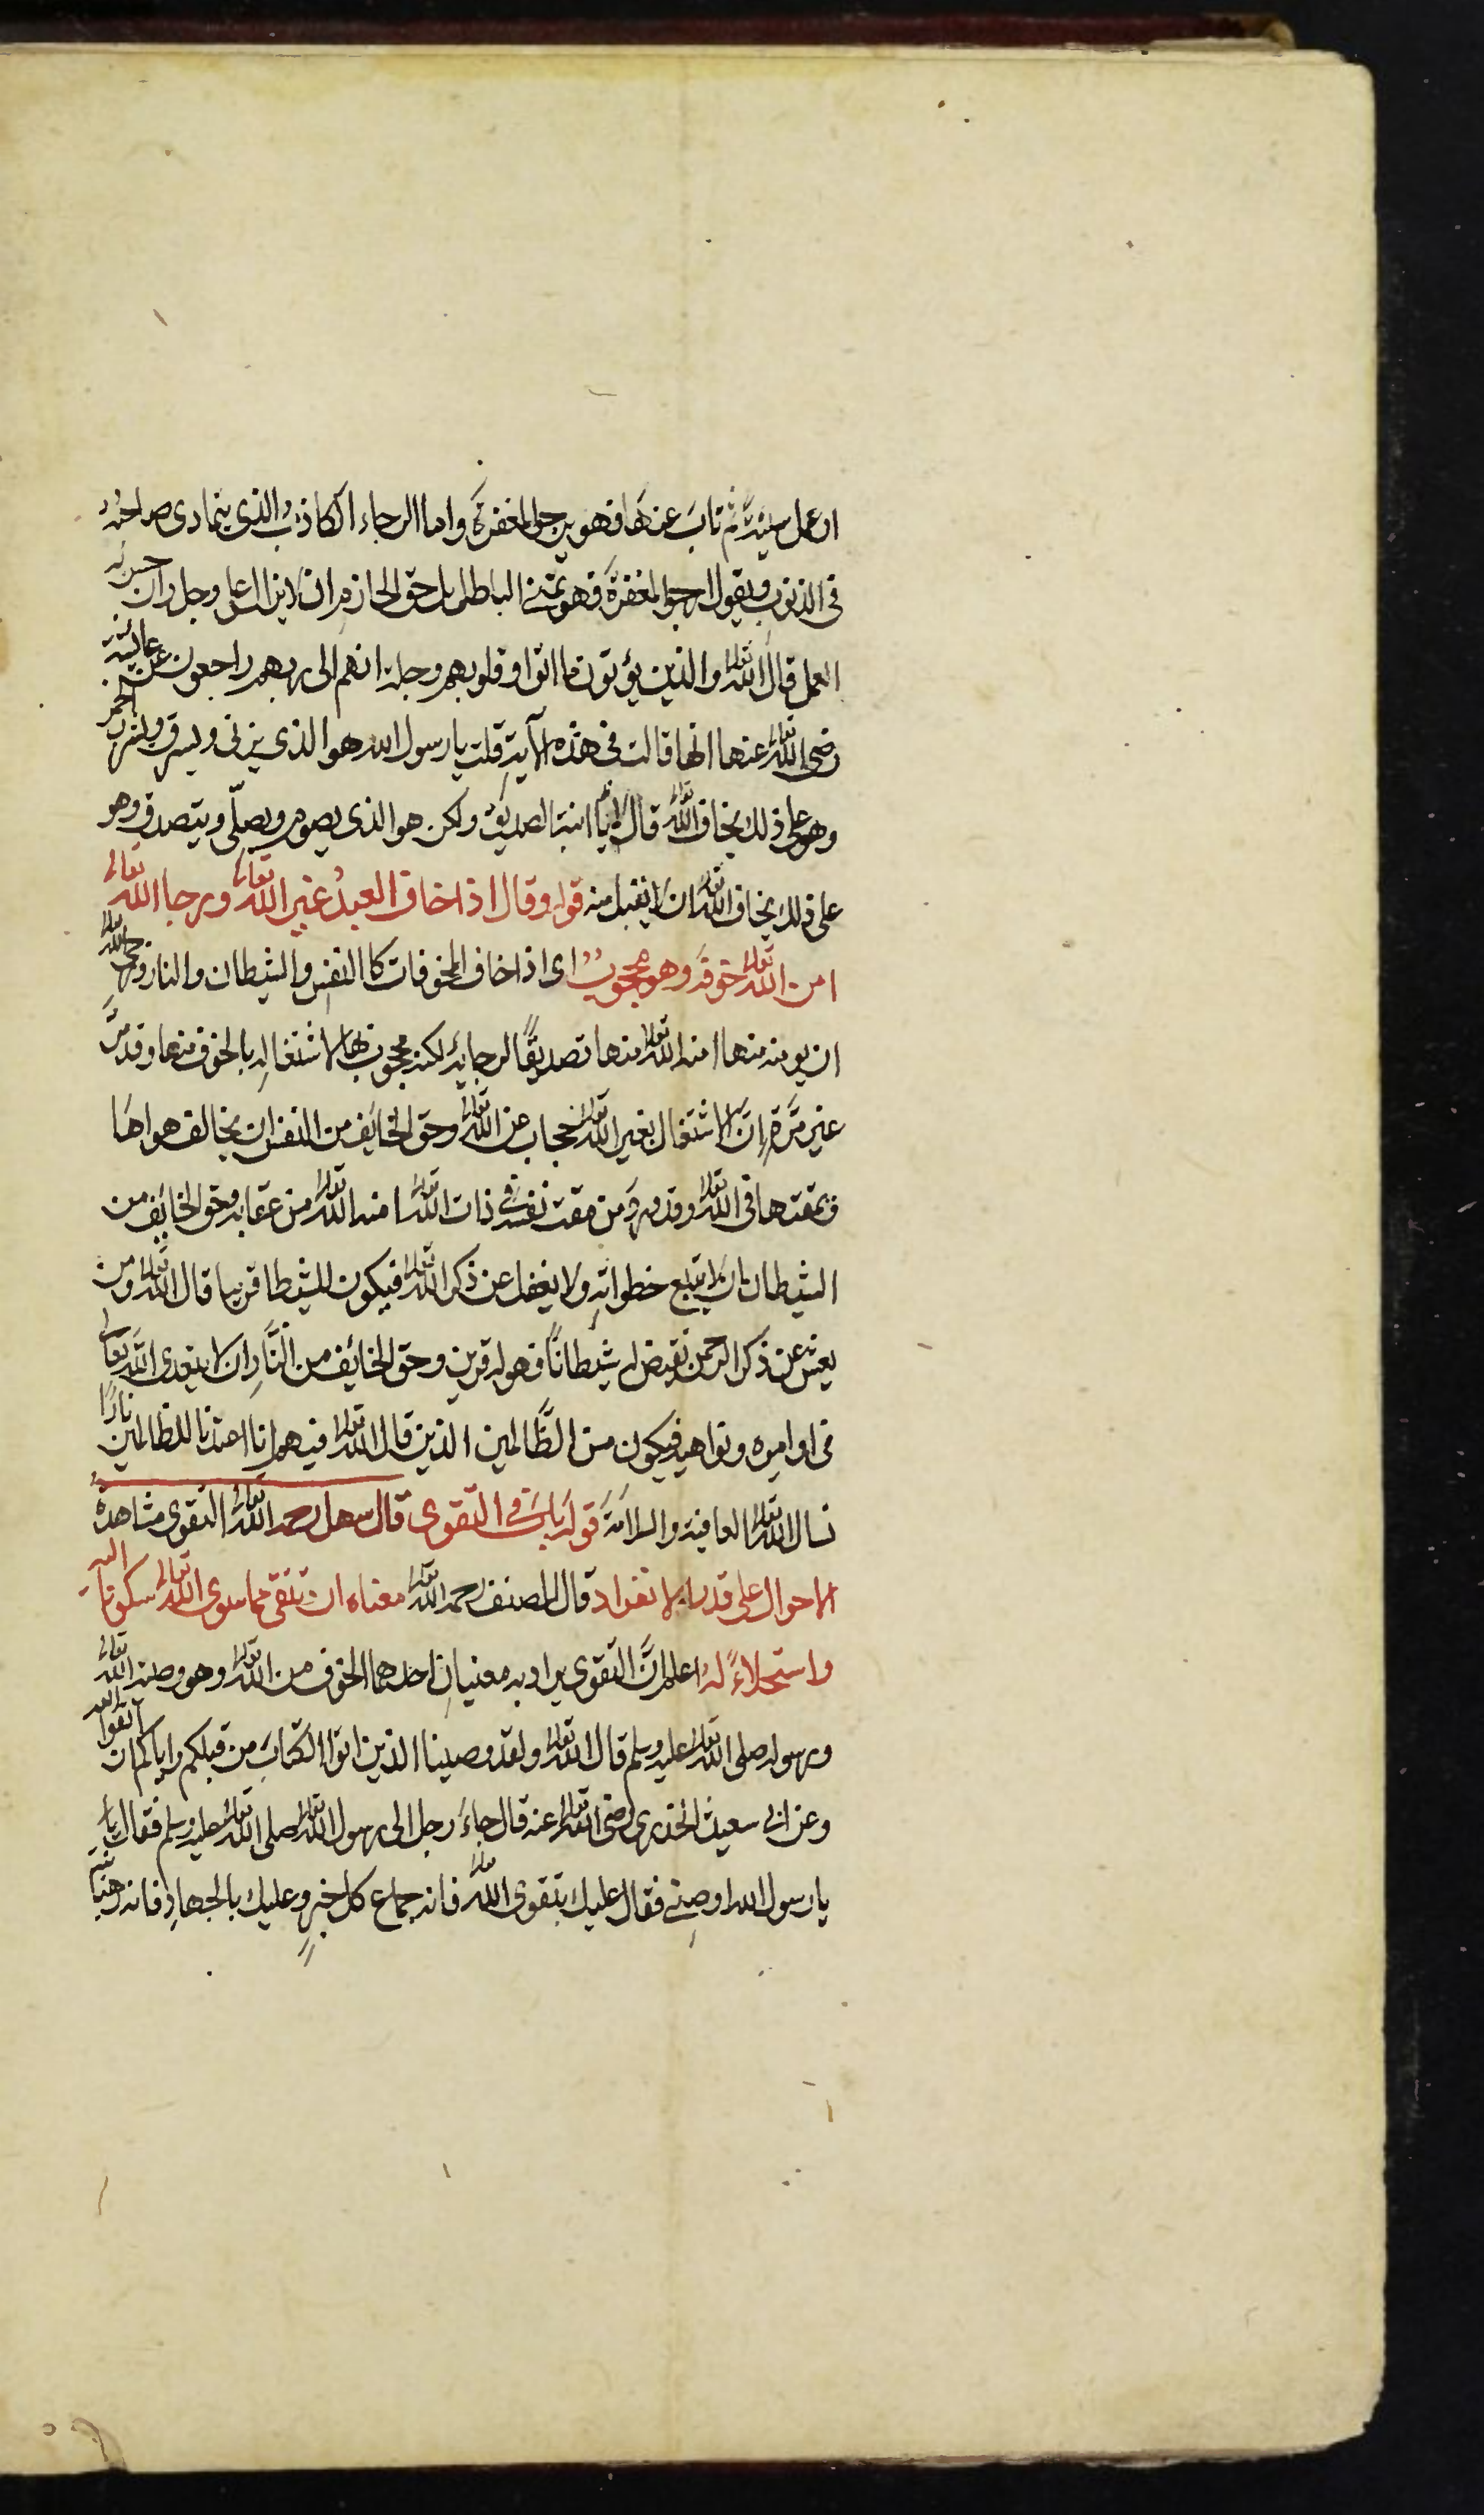 او عمل سيئة ثم تاب عنها فهو يرجو المغفرة واما الرجاء الكاذب والذى يتمادى صاحبه
فى الذنوب ويقول ارجو المغفرة فهو تمنى الباطل بل حق الحازم ان لا يزال وجل وان حسن
العمل قال الله تعالى والذين يؤتون ما اتوا وقلوبهم وجلة انهم الى ربهم راجعون عن عائشة
رضى الله تعالى عنها انها قالت فى هذه الآية قلت يا رسول الله هو الذى يزنى ويسرق ويشرب الخمر
وهو على ذلك يخاف الله تعالى قال لا يا ابنة الصديق ولكن هو الذى يصوم ويصلّى ويتصدق وهو
على ذلك يخاف الله تعالى ان لا يقبل منه قوله وقال اذا خاف العبد غير الله تعالى ورجا الله تعالى
امن الله تعالى خوفه وهو محجوب اى اذا خاف المخوفات كالنفس والشيطان والنار ورجى الله تعالى
ان يومنه منها امنه الله تعالى منها تصديقًا لرجايه لكنه محجوب بها لاشتغاله بالخوف منها وقد مرّ
غير مرّة ان الاشتغال بغير الله تعالى حجاب عن الله تعالى وحق الخايف من النفس ان يخالف هواها
ويمقتها فى الله تعالى وقد ورد من مقت نفسه فى ذات الله تعالى امنه الله تعالى من عقابه وحق الخائف من
الشيطان بان لا يتبع خطواته ولا يغفل عن ذكر الله تعالى فيكون للشيطا قرينا قال الله تعالى ومن
يعش عن ذكر الرحمن نقيض له شيطانًا فهو له قرين وحق الخائف من النّار ان لا يتعدى الله تعالى
فى اوامره ونواهيه فيكون من الظّالمين الذين قال الله تعالى فيهم انا اعتدنا للظالمين نارًا
نسال الله تعالى العافية والسلامة قوله باب فى التقوى قال سهل رحمه الله تعالى التقوى مشاهدة
الاحوال على قدم الانفراد قال المصنف رحمه الله تعالى معناه ان تتقى مما سوى الله تعالى سكونا اليه
واستحلاءً له اعلم انّ التقوى يراد به معنيان احدهما الخوف من الله تعالى وهو وصية الله تعالى
ورسوله صلى الله تعالى عليه وسلم قال الله تعالى ولقد وصينا الذين اتوا الكتاب من قبلكم واياكم ان اتقوا الله
وعن ابى سعيد الخدرى رضى الله تعالى عنه قال جاء رجل الى رسول الله تعالى صلى الله تعالى عليه وسلم فقال يا
يا رسول الله اوصنى فقال عليك بتقوى الله تعالى فانه جماع كل خير وعليك بالجهاد فانه رهبانية